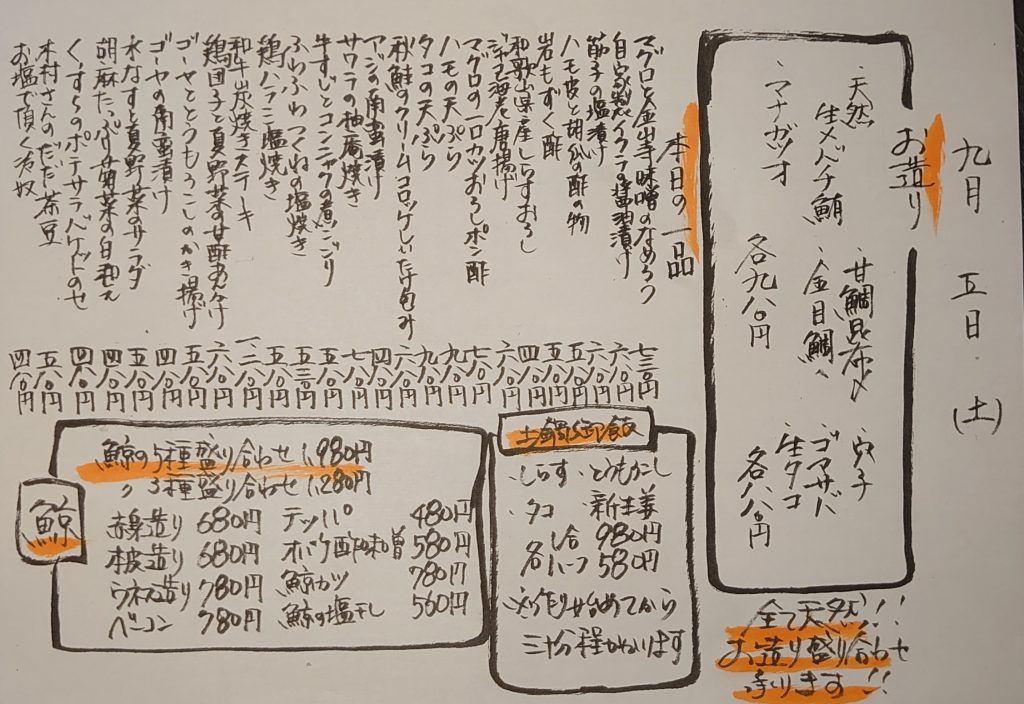 九月 五日 (土)
お造り
天然
生メバチ鮪 ・金目鯛
マナガツオ
甘鯛昆布〆
各九八〇円
・穴子
ゴマサバ
・生タコ
各八八〇円
全て天然!!
お造り盛り合わせ
承ります!!
本日の一品
マグロと金山寺味噌のなめろう 七三〇円
自家製イクラの醤油漬け 六八〇円
筋子の塩漬け 六八〇円
ハモ皮と胡瓜の酢の物 五八〇円
岩もずく酢 五八〇円
和歌山県産しらすおろし 四八〇円
ジャコ海老唐揚げ 六八〇円
マグロの一口カツおろしポン酢 七八〇円
ハモの天ぷら 九八〇円
タコの天ぷら 九八〇円
秋鮭クリームコロッケしいたけ包み 六八〇円
アジの南蛮漬け 四八〇円
サワラの柚庵焼き 七八〇円
牛すじとコンニャクの煮こごり 五八〇円
ふわふわつくねの塩焼き 五三〇円
鶏ハラミ塩焼き 五八〇円
和牛炭焼きステーキ 一、二八〇円
鶏団子と夏野菜の甘酢あんかけ 六八〇円
ゴーヤととうもろこしのかき揚げ 五八〇円
ゴーヤの南蛮漬け 四八〇円
水なすと夏野菜のサラダ 五八〇円
胡麻たっぷり 菜の白和え 四八〇円
くすらのポテサラバケットのせ 四八〇円
木村さんのだだ茶豆 五八〇円
お塩で頂く冷奴 四八〇円
土鍋御飯
・しらす ・とうもろこし
・タコ ・新生姜
各一合 980円
各ハーフ 580円
※作り始めてから
三十分程かかります
鯨
鯨の5種盛り合わせ 1,980円
〃 3種盛り合わせ 1,280円
赤身造り 680円 テッパ 480円
本皮造り 680円 オバケ酢味噌 580円
ウネス造り 780円 鯨カツ 780円
ベーコン 780円 鯨の塩干し 560円